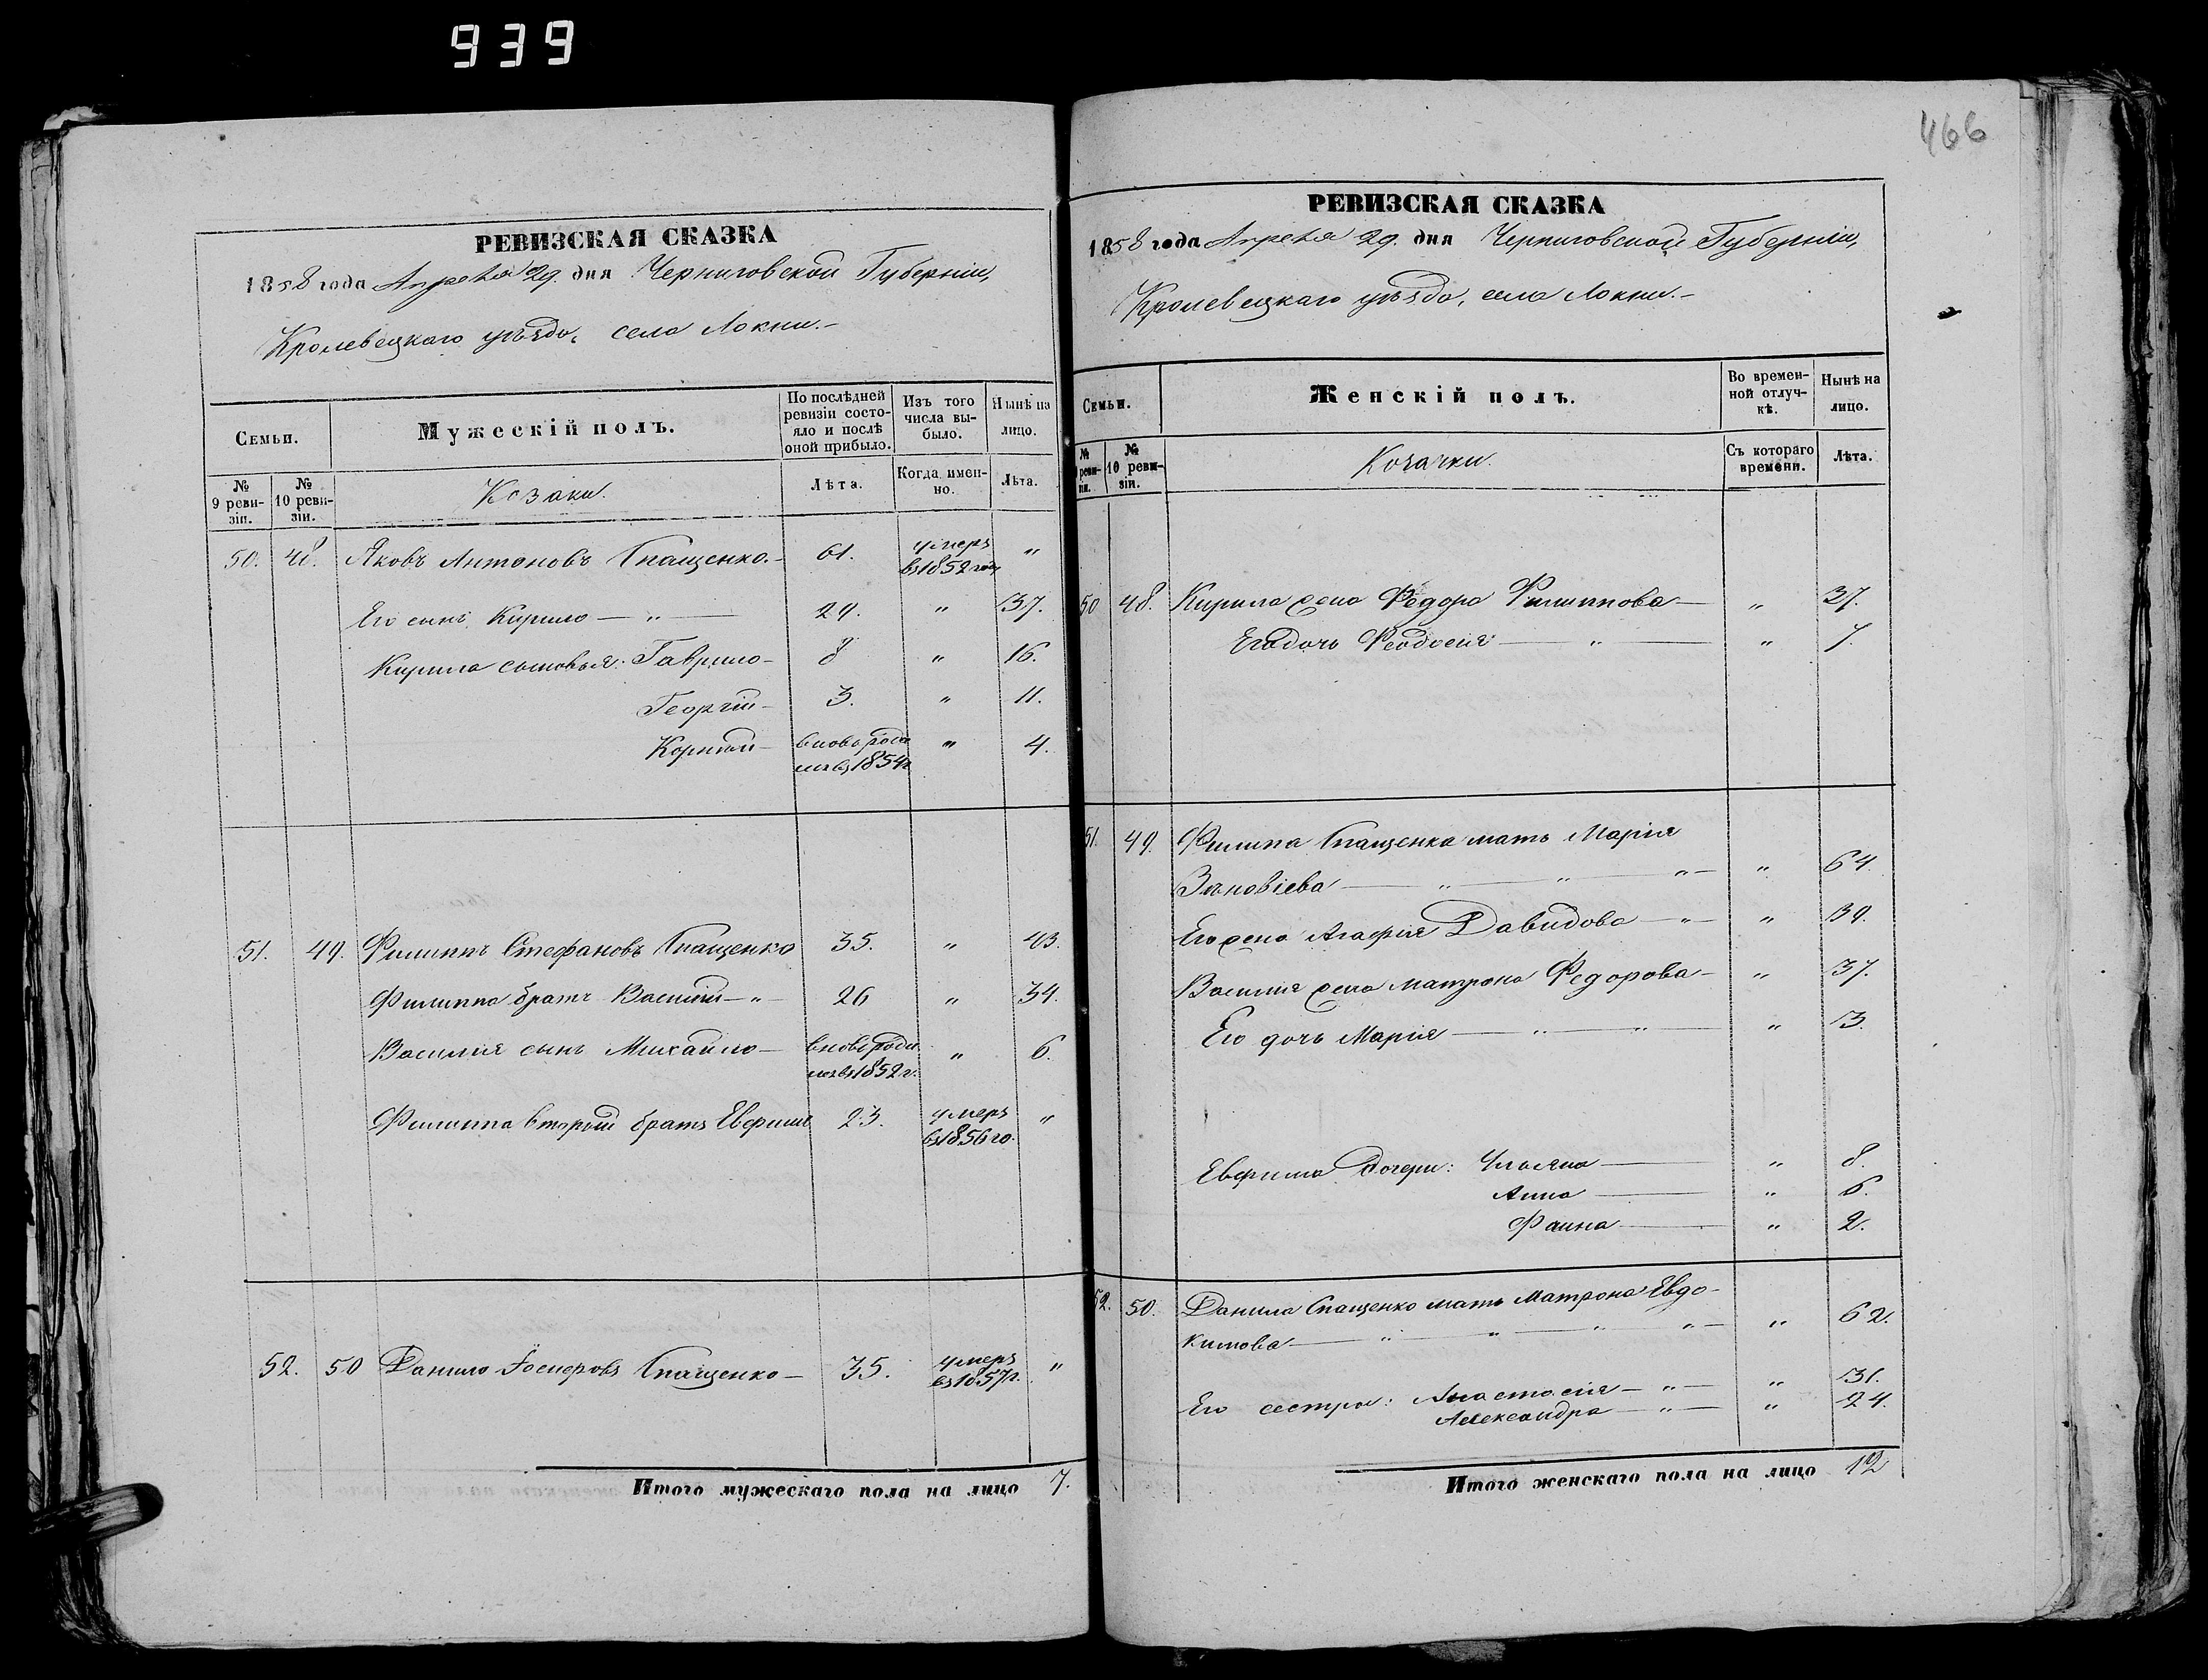 939
466
РЕВИЗСКАЯ СКАЗКА
1858 года Апреля 29. дня Черниговской Губерніи,
Кролевецкаго уѣзда, села Локни.-
Семьи.
Мужескій полъ.
По послѣдней ревизіи состояло и послѣ оной прибыло.
Изъ того числа выбыло.
Нынѣ на лицо.
№ 9 ревизіи.
№ 10 ревизіи.
Козаки.
Лѣта.
Когда именно.
Лѣта.
50. 48. Яковъ Антоновъ Спащенко.- 61. умеръ въ 1852 году "
Его сынъ Кирило — " — 29. " 37.
Кирила сыновья: Гаврило- 8 " 16.
Георгій- 3. " 11.
Корнѣй- вновь родился въ 1854 г " 4.
51. 49. Филиппъ Стефановъ Спащенко 35. " 43.
Филиппа братъ Василій — " — 26 " 34.
Василія сынъ Михайло — вновь родился въ 1852 г. " 6.
Филиппа вторый братъ Евфимъ 23. умеръ въ 1856 го. "
52. 50 Данило Іосифовъ Спащенко — 35. умеръ въ 1857 г. "
Итого мужескаго пола на лицо 7.
РЕВИЗСКАЯ СКАЗКА
1858 года Апреля 29. дня Черниговской Губерніи,
Кролевецкаго уѣзда, села Локни.-
Семьи.
Женскій полъ.
Во временной отлучкѣ.
Нынѣ на лицо.
№ 10 ревизіи.
Козачки.
Съ котораго времени.
Лѣта.
50 48. Кирила жена Федора Филиппова — " 37.
Его дочь Феодосія — " — " 7.
51. 49. Филипа Спащенка мать Марія
Зѣновіева — " — " — " — " 64.
Его жена Агафія Давидова — " — " 39.
Василія жена Матрона Федорова — " 37.
Его дочь Марія — " — " — " 13.
Евфима дочери: Ульяна — " 8.
Анна — " 6.
Фаина — " 2.
52. 50. Данила Спащенко мать Матрона Евдо-
кимова — " — " — " — " — " 62.
Его сестры: Анастасія — " — " 31.
Александра — " — " 24.
Итого женскаго пола на лицо 12